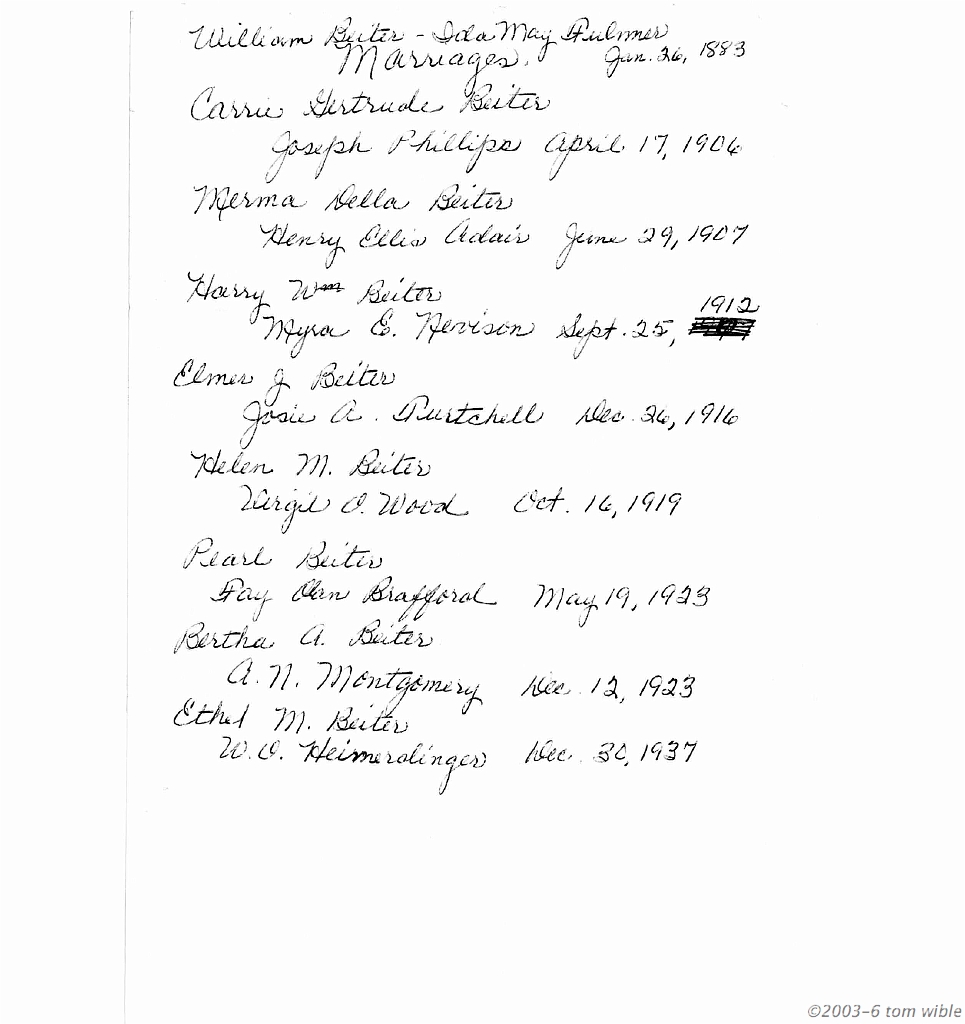 William Beiter - Ida May Fulmer
Marriages. Jan. 26, 1883
Carrie Gertrude Beiter
Joseph Phillips April 17, 1906
Merma Della Beiter
Henry Ellis Adair June 29, 1907
Harry Wm Beiter
1912
Myra E. Nevison Sept. 25,
Elmer J Beiter
Josie A. Turtchell Dec. 26, 1916
Helen M. Beiter
Virgil O. Wood Oct. 16, 1919
Pearl Beiter
Fay Van Brafford May 19, 1923
Bertha A. Beiter
A. N. Montgomery Dec. 12, 1923
Ethel M. Beiter
W. O. Heimerdinger Dec. 30, 1937
©2003-6 tom wible